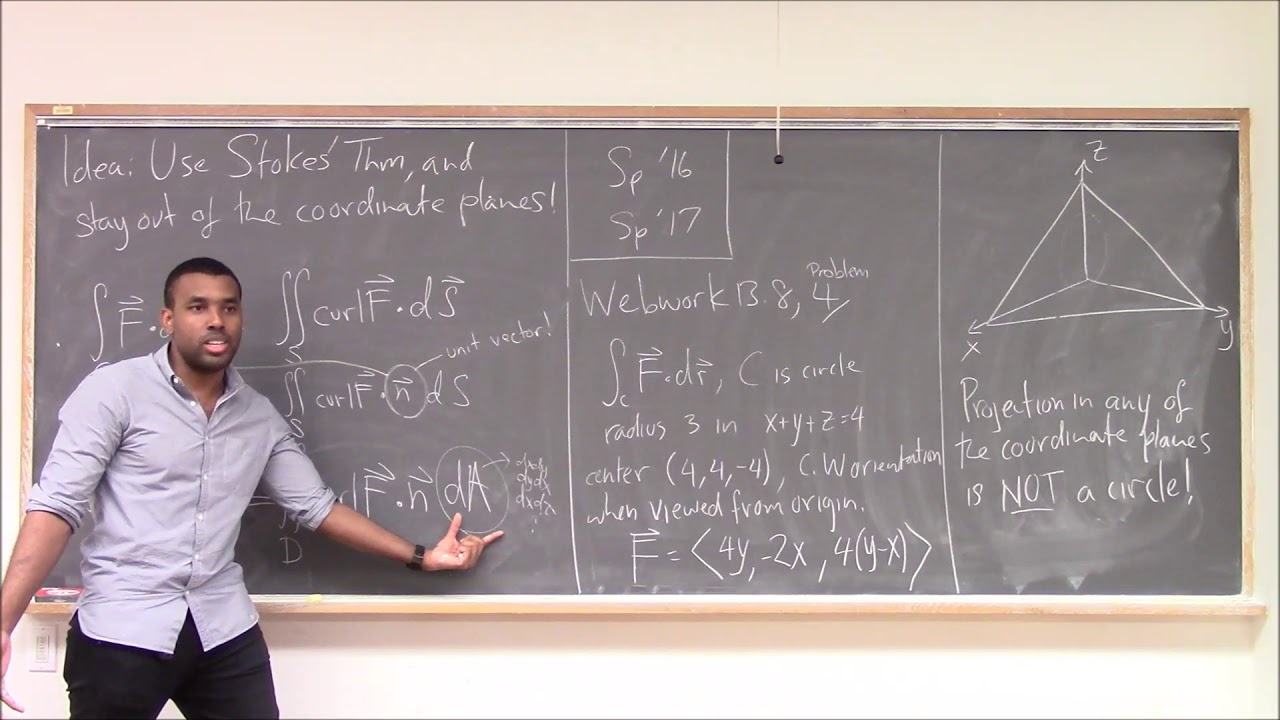 Idea: Use Stokes' Thm, and
stay out of the coordinate planes!
∫ F⃗ · d
∬ curl F⃗ · dS⃗
S
unit vector!
∬ curl F⃗ · n⃗ dS
S
= curl F⃗ · n⃗ dA
D
dxdy
dydz
dxdz
Sp '16
Sp '17
Problem
Webwork 13.8, 4
∫ F⃗ · dr⃗, C is circle
C
radius 3 in x+y+z=4
center (4,4,-4), C.W orientation
when viewed from origin.
F⃗ = ⟨4y, -2x, 4(y-x)⟩
z
x
y
Projection in any of
the coordinate planes
is NOT a circle!